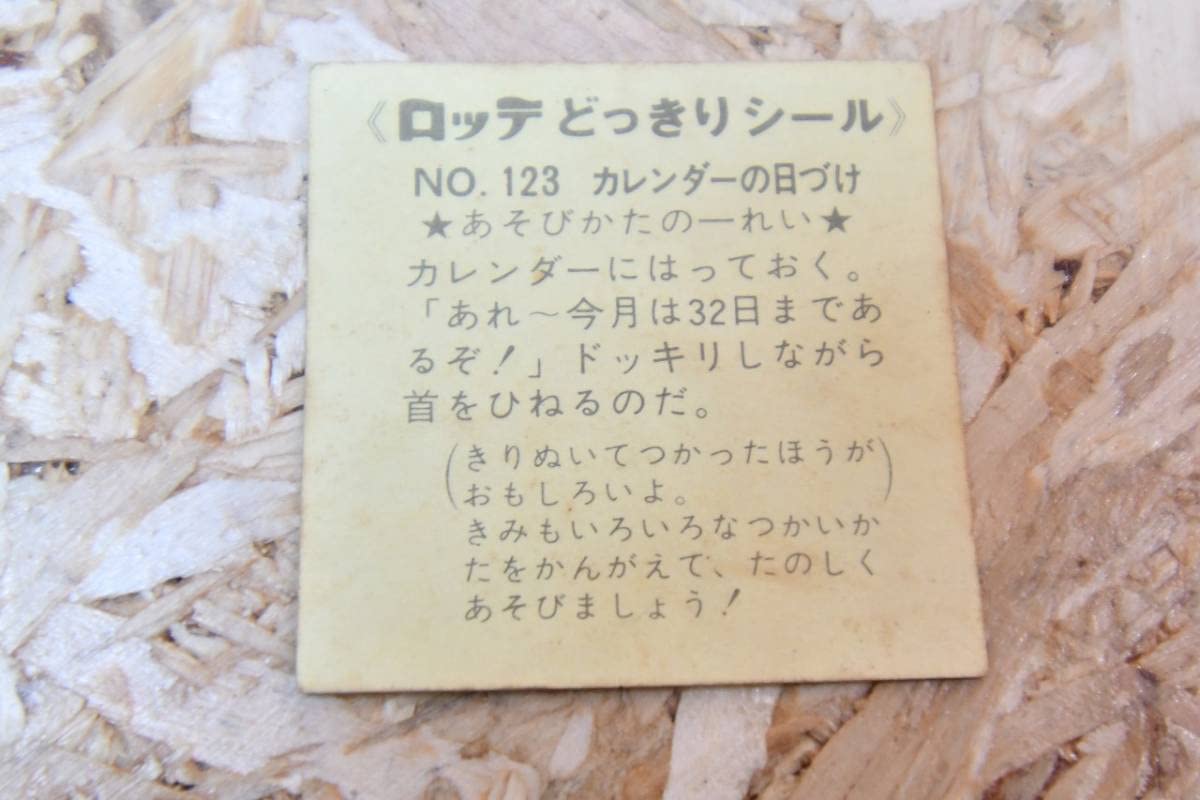 《ロッテ どっきりシール》
NO. 123 カレンダーの日づけ
★あそびかたの一れい★
カレンダーにはっておく。
「あれ〜今月は32日まであ
るぞ!」ドッキリしながら
首をひねるのだ。
(きりぬいてつかったほうが
おもしろいよ。)
きみもいろいろなつかいか
たをかんがえて、たのしく
あそびましょう!